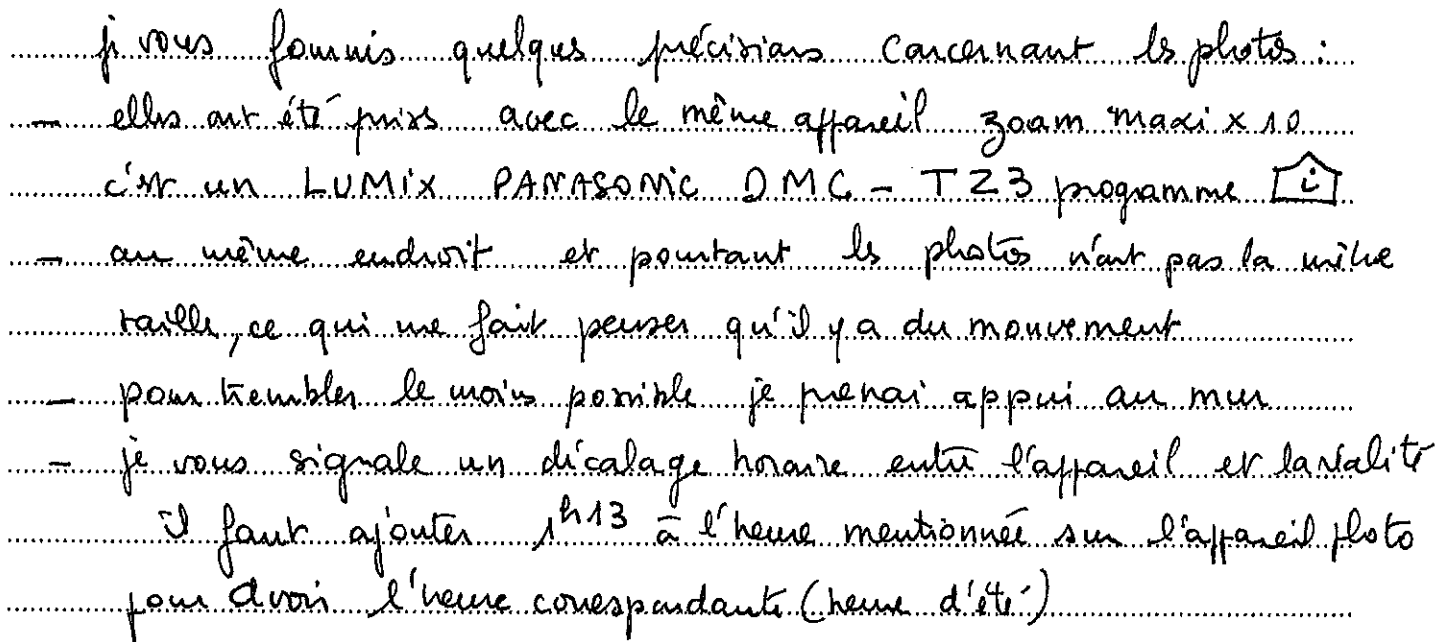 je vous fournis quelques précisions concernant les photos :
- elles ont été prises avec le même appareil zoom maxi x 10
c'est un LUMIX PANASONIC DMC - TZ3 programme i
- au même endroit et pourtant les photos n'ont pas la même
taille, ce qui me fait penser qu'il y a du mouvement
- pour trembler le moins possible je prenai appui au mur
- je vous signale un décalage horaire entre l'appareil et la réalité
il faut ajouter 1h13 à l'heure mentionnée sur l'appareil photo
pour avoir l'heure correspondante (heure d'été)